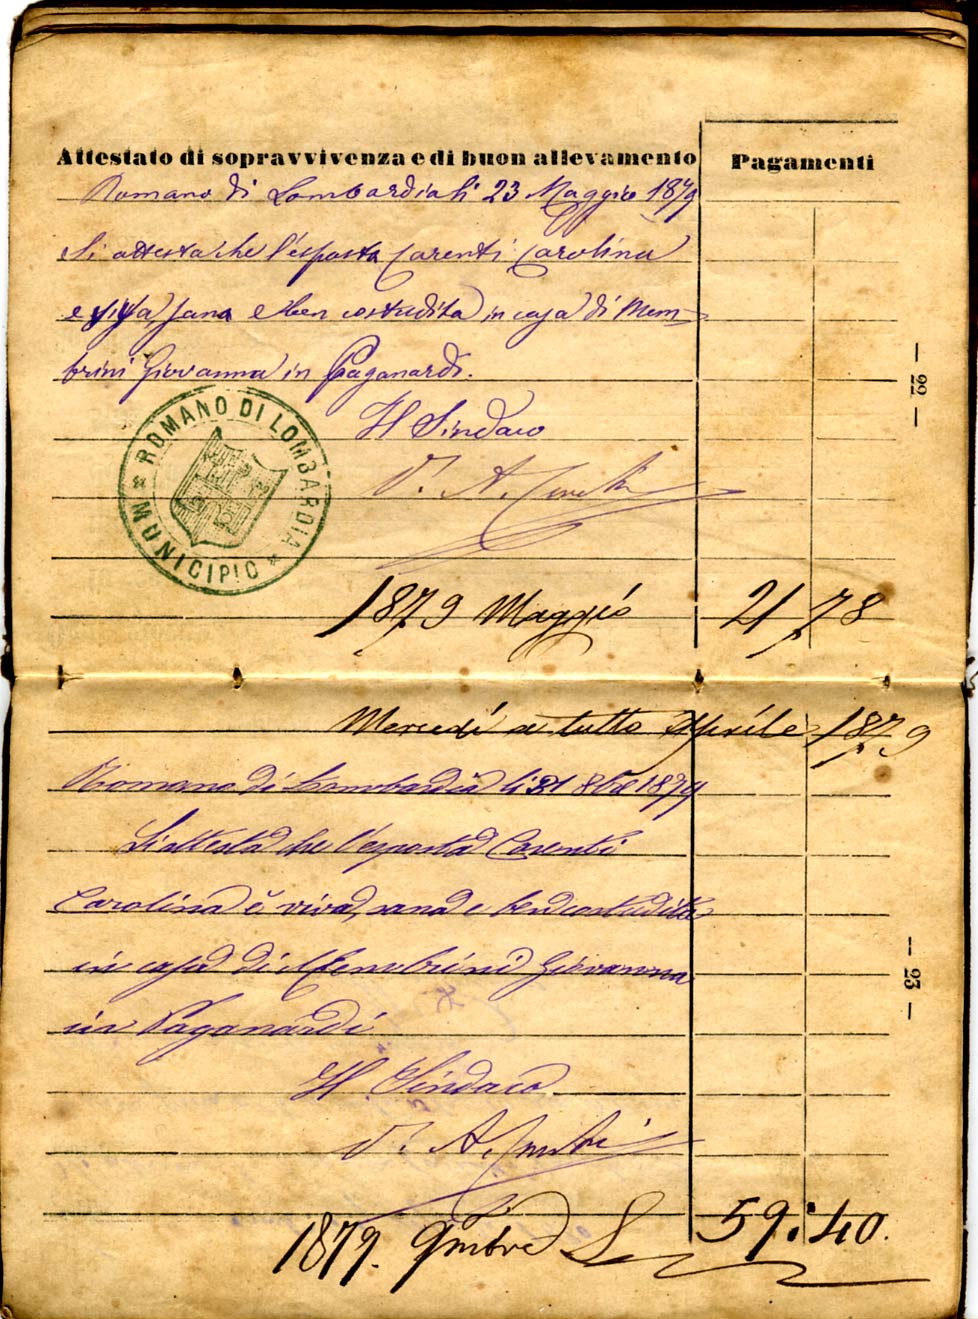 Attestato di sopravvivenza e di buon allevamento
Pagamenti
Romano di Lombardia li 23 Maggio 1879
Si attesta che l'esposta Carenti Carolina
e viva, sana e ben costudita in casa di Mem-
brini Giovanna in Paganardi.
Il Sindaco
ROMANO DI LOMBARDIA
MUNICIPIO
1879 Maggió 21 78
— 22 —
Mercedi a tutto Aprile 1879
Romano di Lombardia li 31 8bre 1879
Si attesta che l'esposta Carenti
Carolina è viva, sana e ben costudita
in casa di Membrini Giovanna
in Paganardi
Il Sindaco
1879. 9mbre L 59:40.
— 23 —